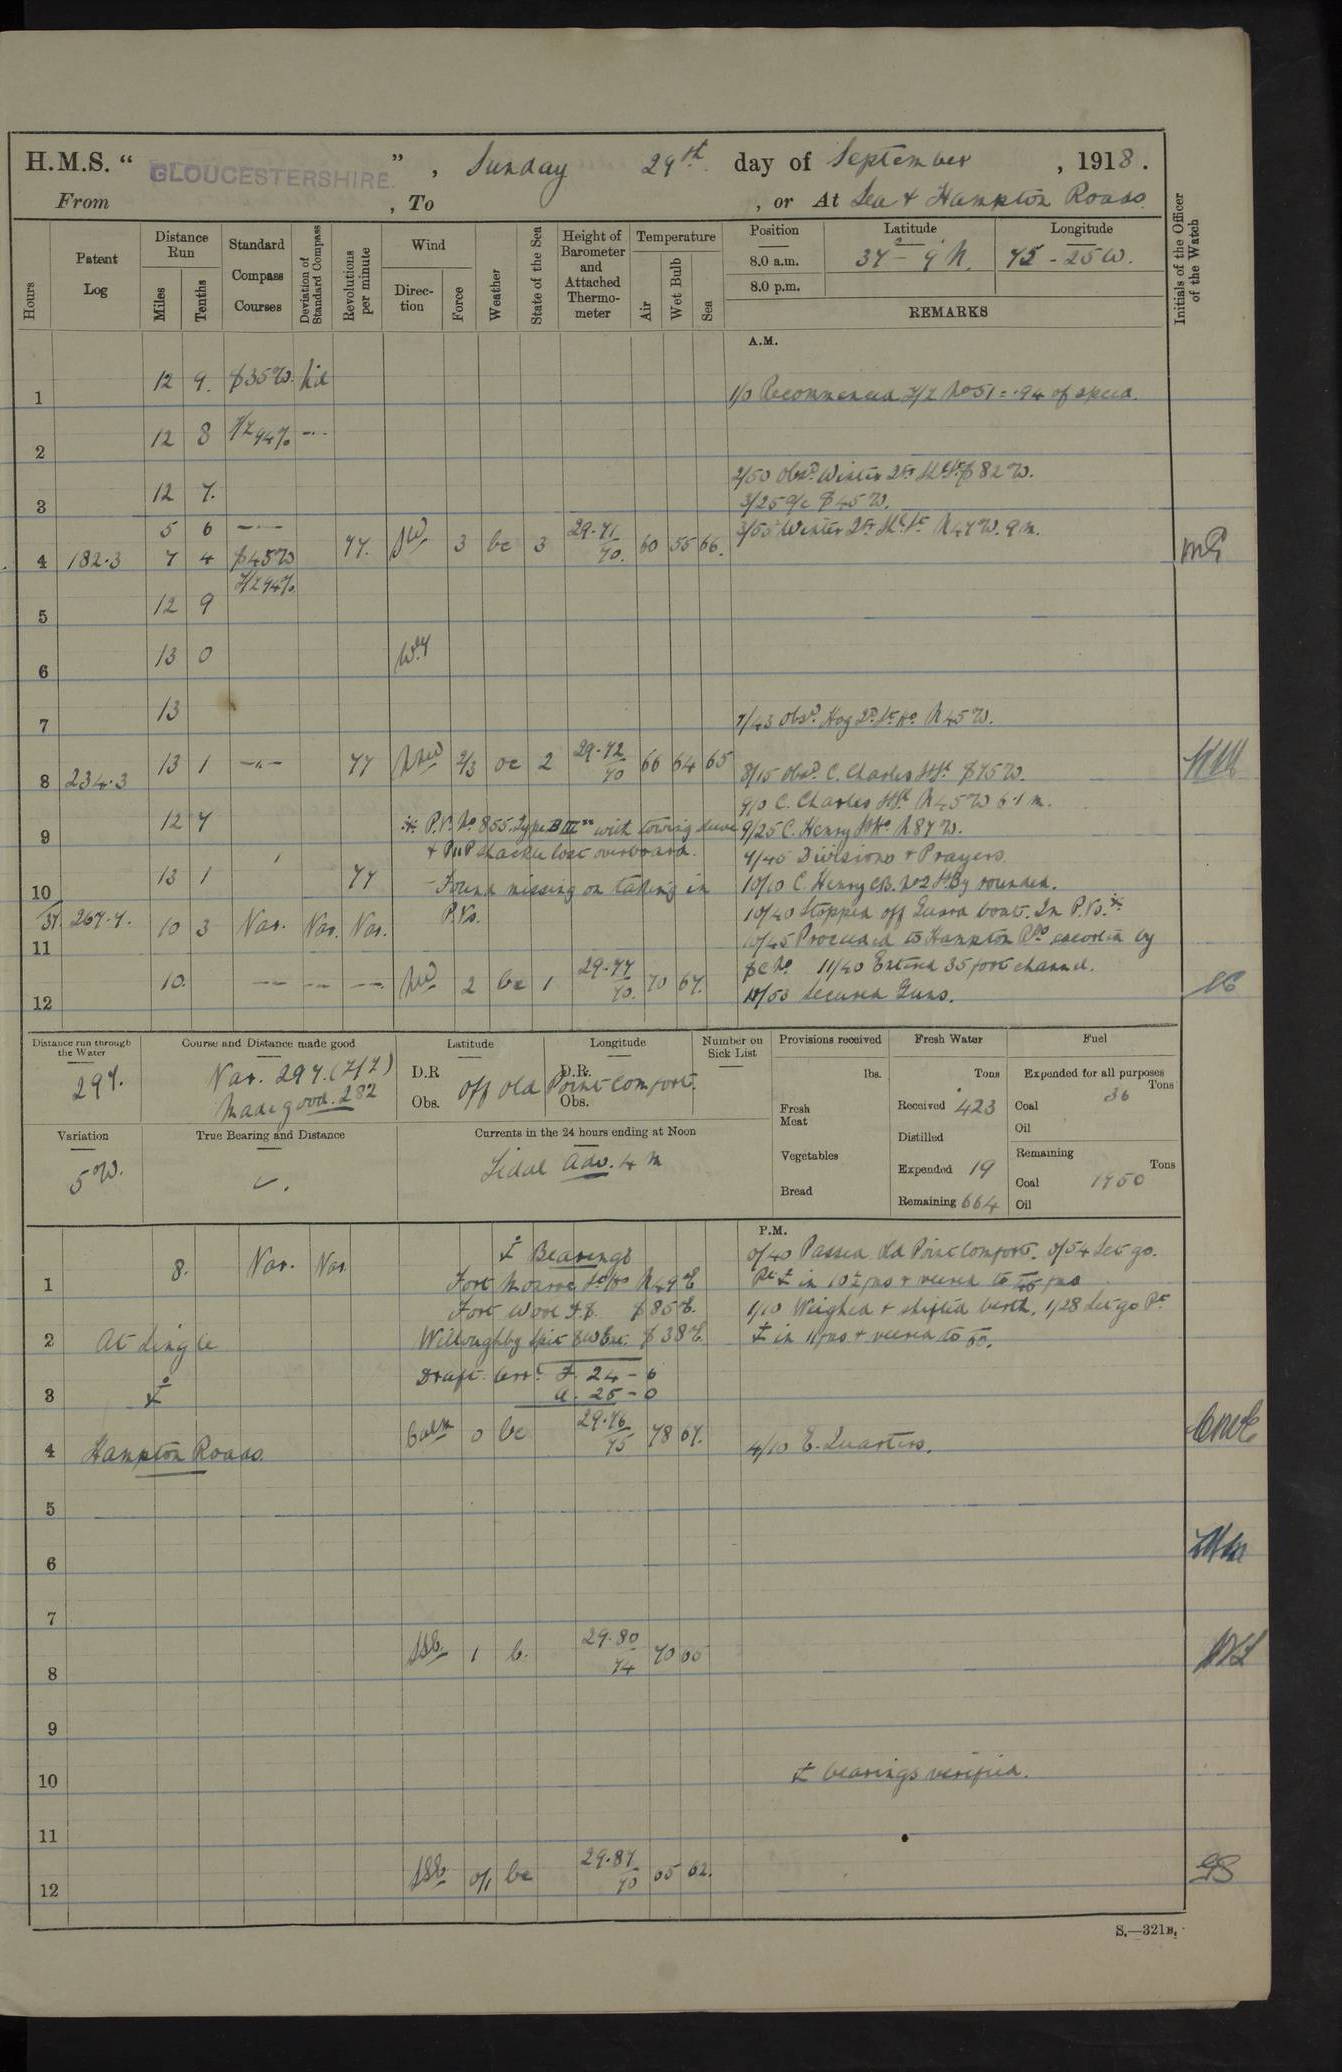 H.M.S. “ GLOUCESTERSHIRE ” , Sunday 29th day of September , 1918.
From , To , or At Sea & Hampton Roads
Hours
Patent Log
Distance Run
Miles
Tenths
Standard Compass Courses
Deviation of Standard Compass
Revolutions per minute
Wind
Direction
Force
Weather
State of the Sea
Height of Barometer and Attached Thermometer
Temperature
Air
Wet Bulb
Sea
Position
8.0 a.m.
8.0 p.m.
Latitude
37 - 9 N.
Longitude
75 - 25 W.
REMARKS
Initials of the Officer of the Watch
A.M.
1 12 9. S 35 W. Nil 1/0 Recommenced Z/Z No 51 = .94 of speed.
2 12 8 Z/Z 94%
2/50 Obsd. Winter Qtr S 82 W.
3 12 7. 3/25 a/c S 45 W.
5 6 3/55 Winter Qtr N 47 W. 9 m.
4 182.3 7 4 S 45 W 77. SW 3 bc 3 29.71 70. 60 55 66.
Z/Z 94%
5 12 9
6 13 0 Wly
7 13 7/43 Obsd. Hog N 45 W.
8 234.3 13 1 77 NNW 2/3 oc 2 29.72 70 66 64 65 8/15 Obsd. C. Charles S 75 W.
9/0 C. Charles N 45 W 6.1 m.
9 12 7 P.V. No 855. type with towing
9/25 C. Henry N 87 W.
& shackle lost overboard. 9/45 Divisions & Prayers.
10 13 1 77 - Found missing on taking in P.Vs. 10/10 C. Henry No 2 rounded.
37. 267.7. 10/40 Stopped off Guard boat. In P.Vs.
11 10 3 Var. Var. Var. 10/45 Proceeded to Hampton Rds escorted by
11/40 Entered 35 foot channel.
12 10. NW 2 bc 1 29.77 70. 70 67. 11/53 Secured Guns.
Distance run through the Water
297.
Course and Distance made good
Var. 297. (Z/Z)
Made good. 282
Latitude
D.R
Obs.
Longitude
D.R.
Obs.
Off Old Point Comfort.
Number on Sick List
Provisions received
lbs.
Fresh Meat
Vegetables
Bread
Fresh Water
Tons
Received 423
Distilled
Expended 19
Remaining 664
Fuel
Expended for all purposes
Tons
Coal 36
Oil
Remaining
Tons
Coal 1750
Oil
Variation
5 W.
True Bearing and Distance
Currents in the 24 hours ending at Noon
Tidal Adv. 4 m
P.M.
Bearings 0/40 Passed Old Point Comfort. 0/54 Let go.
1 8. Var. Var. Fort Monroe N 49 E in 10½ fms & veered to 45 fms
Fort Wool S 85 E. 1/10 Weighed & shifted berth. 1/28 Let go Pt
2 At Single Willoughby Spit S 38 E. in 11 fms & veered to 60.
Draft F. 24 - 6
3 A. 25 - 0
4 Hampton Roads. Calm 0 bc 29.76 75 78 67. 4/10 E. Quarters.
5
6
7
8 1 b. 29.80 74 70 65
9
10 bearings verified.
11
12 0/1 bc 29.87 70 65 62.
S.—321B.